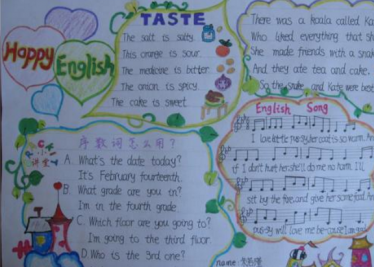 Happy
English
TASTE
The salt is salty.
This orange is sour.
The medicine is bitter.
The onion is spicy.
The cake is sweet.
There was a koala called Ka
Who liked everything that sh
She made friends with a snak
And they ate tea and cake.
So the snake and Kate were best
序数词怎么用?
A. What's the date today?
It's February fourteenth.
B What grade are you in?
I'm in the fourth grade
C. Which floor are you going to?
I'm going to the third floor
D. Who is the 3rd one?
English Song
I love little pussy her coat is so warm. An
if I don't hurt her she'll do me no harm. I'll
sit by the fire and give her some food. An
pussy will love me because I am
name